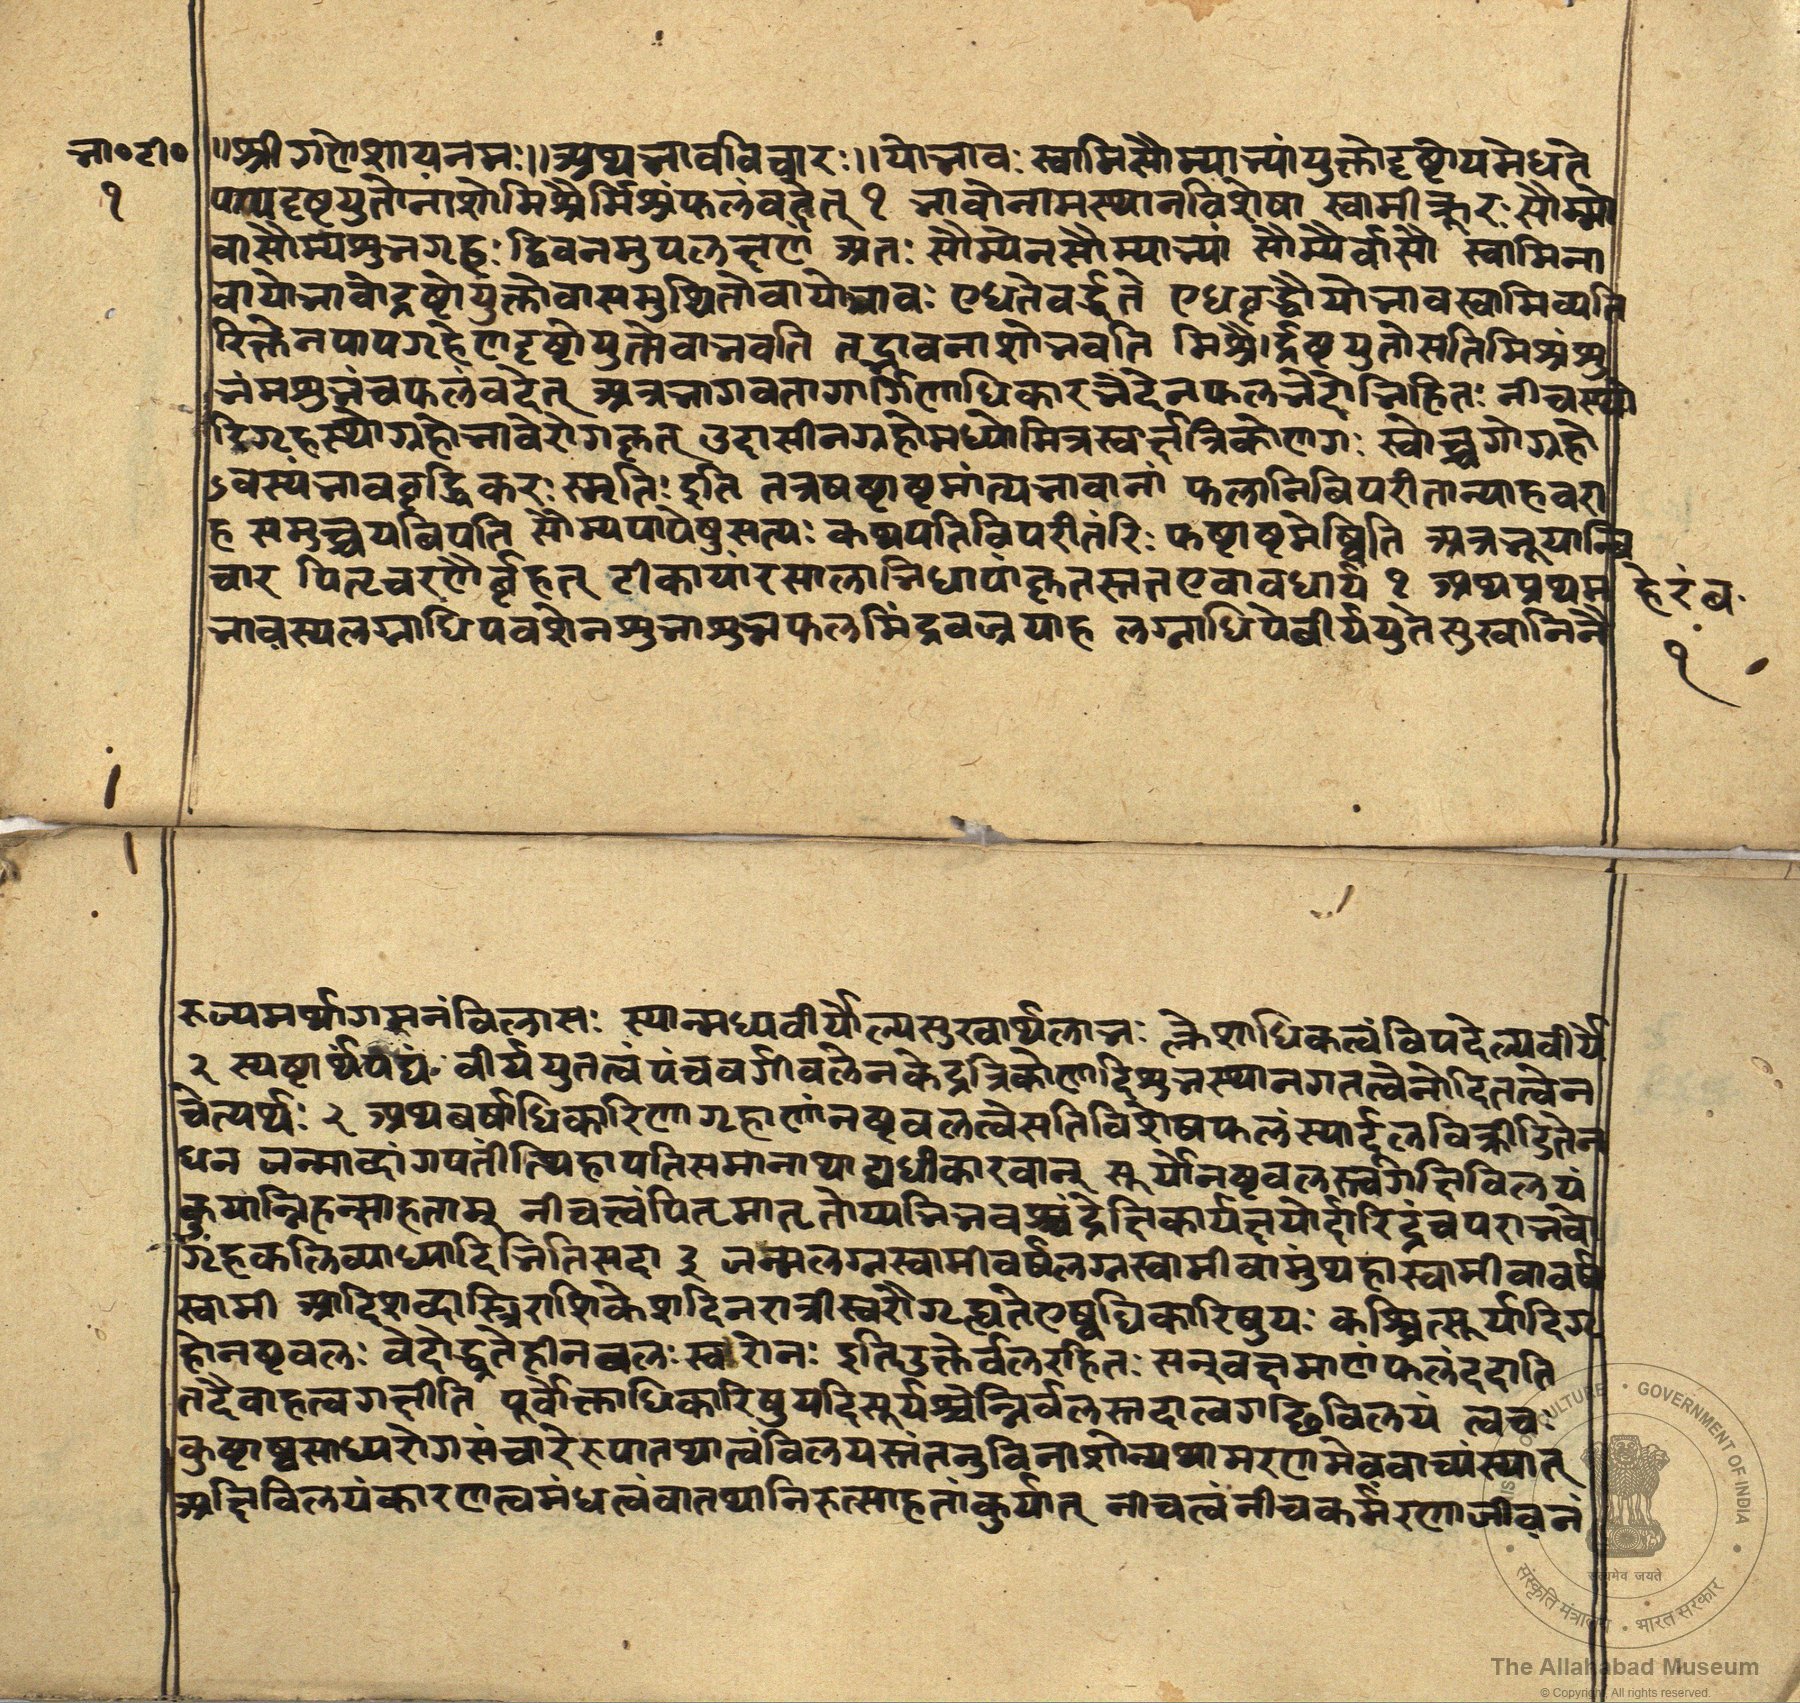 भा॰टी॰
१
॥श्रीगणेशायनमः॥अथभावविचारः॥योभावः स्वामिसौम्याभ्यांयुक्तोदृष्टोयमेधते
पापदृष्टयुतोनाशोमिश्रैर्मिश्रंफलंवदेत् १ भावोनामस्थानविशेषा स्वामीक्रूरः सौम्यो
वासौम्यशुभग्रहः द्विवचनमुपलक्षणं अतः सौम्येनसौम्याभ्यां सौम्यैर्वासौ स्वामिना
वायोभावोदृष्टोयुक्तोवासमुश्चितोवायोभावः एधतेवर्द्धते एधवृद्धौ योभावस्वामिव्यति
रिक्तेनपापग्रहेणदृष्टोयुक्तोवाभवति तद्भावनाशोभवति मिश्रैर्दृष्टयुतोसतिमिश्रंशु
भंमशुभंचफलंवदेत् अत्रभागवतागार्गिणाधिकारभेदेनफलभेदोभिहितः नीचस्थो
रिगृहस्थोग्रहोभावेरोगकृत् उदासीनग्रहोमध्योमित्रस्वर्क्षत्रिकोणगः स्वोच्चगोग्रहो
ऽवस्यंभाववृद्धिकरः स्मृतिः इति तत्रषष्टाष्टमांत्यभावानां फलानिबिपरीतान्याहवरा
ह समुच्चयबिपति सौम्यपापेषुसत्यः कथपतिविपरीतंरिः फष्टाष्टमेष्विति अत्रभूयान्वि
चार पितृचरणैर्बृहत् टीकायांरसालाभिधापांकृतस्ततएवावधार्य १ अथप्रथम
हेरंब
भावस्यलग्नाधिपवशेनशुभाशुभफलमिंद्रवज्रयाह लग्नाधिपेबीर्ययुतेसुखानिनै
१
रुज्यमर्थागमनंविलासः स्यान्मध्यवीर्योल्पसुखार्थलाभः क्लेशाधिकत्वंविपदेल्पवीर्ये
२ स्पष्टार्थपद्यं वीर्ययुतत्वंपंचवर्गीबलेनकेंद्रत्रिकोणादिशुभस्थानगतत्वेनोदितत्वेन
चेत्यर्थः २ अथबर्षाधिकारिणागृहाणांनष्टबलत्वेसतिविशेषफलंस्पार्दूलविक्रीडितेन
धन जन्माब्दांगपतींत्थिहापतिसमानाथाद्यधीकारवान् सूर्योनष्टबलस्त्वगक्षिविलयं
कुर्यान्निहन्साहताम् नीचत्वंपितृमातृतोप्यभिभवश्चंद्रेक्षिकार्यक्षयोर्दारिद्रंचपराभवो
गृहकलिव्याध्याधिभितिसदा ३ जन्मलग्नस्वामीवर्षलग्नस्वामीवामुंथहास्वामीवावर्ष
स्वामी आदिशब्दास्त्रिराशिकेशदिनरात्रीस्वरौगृह्यतेएष्वधिकारिषुयः कश्चित्सूर्यादिग्र
होनष्टबलः वैदोद्धुतेहीनबलः स्वरोनः इतिउक्तेर्बलरहितः सन्वक्षमाणंफलंददाति
तदैवाहत्वगक्षीति पूर्वोक्ताधिकारिषुयदिसूर्यश्चेन्निर्बलस्तदात्वगच्छिविलयं त्वचः
कुष्टाष्वसाध्यरोगसंचारेरुपातथात्वंविलयस्तंतनुविनाशोन्यथामरणमेववाच्यंस्यात्
अक्षिविलयंकारणत्वमंधत्वंवातथानिरुत्साहतांकुर्यात् नीचत्वंनीचकर्मरणाजीवनं
GOVERNMENT OF INDIA
सत्यमेव जयते
संस्कृति मंत्रालय • भारत सरकार
The Allahabad Museum
© Copyright. All rights reserved.